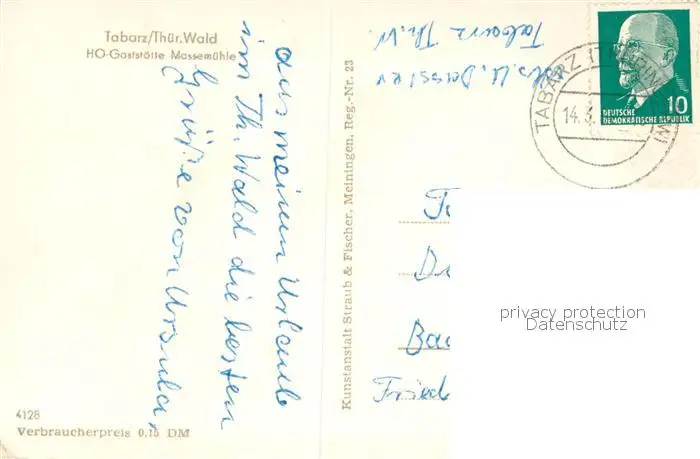 Tabarz/Thür. Wald
HO-Gaststätte Massemühle
aus meinem Urlaub
im Th. Wald die besten
Grüße von Ursula.
4128
Verbraucherpreis 0,15 DM
Kunstanstalt Straub & Fischer, Meiningen, Reg.-Nr. 23
Tabarz Th. W.
TABARZ
14.3.
10
DEUTSCHE
DEMOKRATISCHE REPUBLIK
privacy protection
Datenschutz